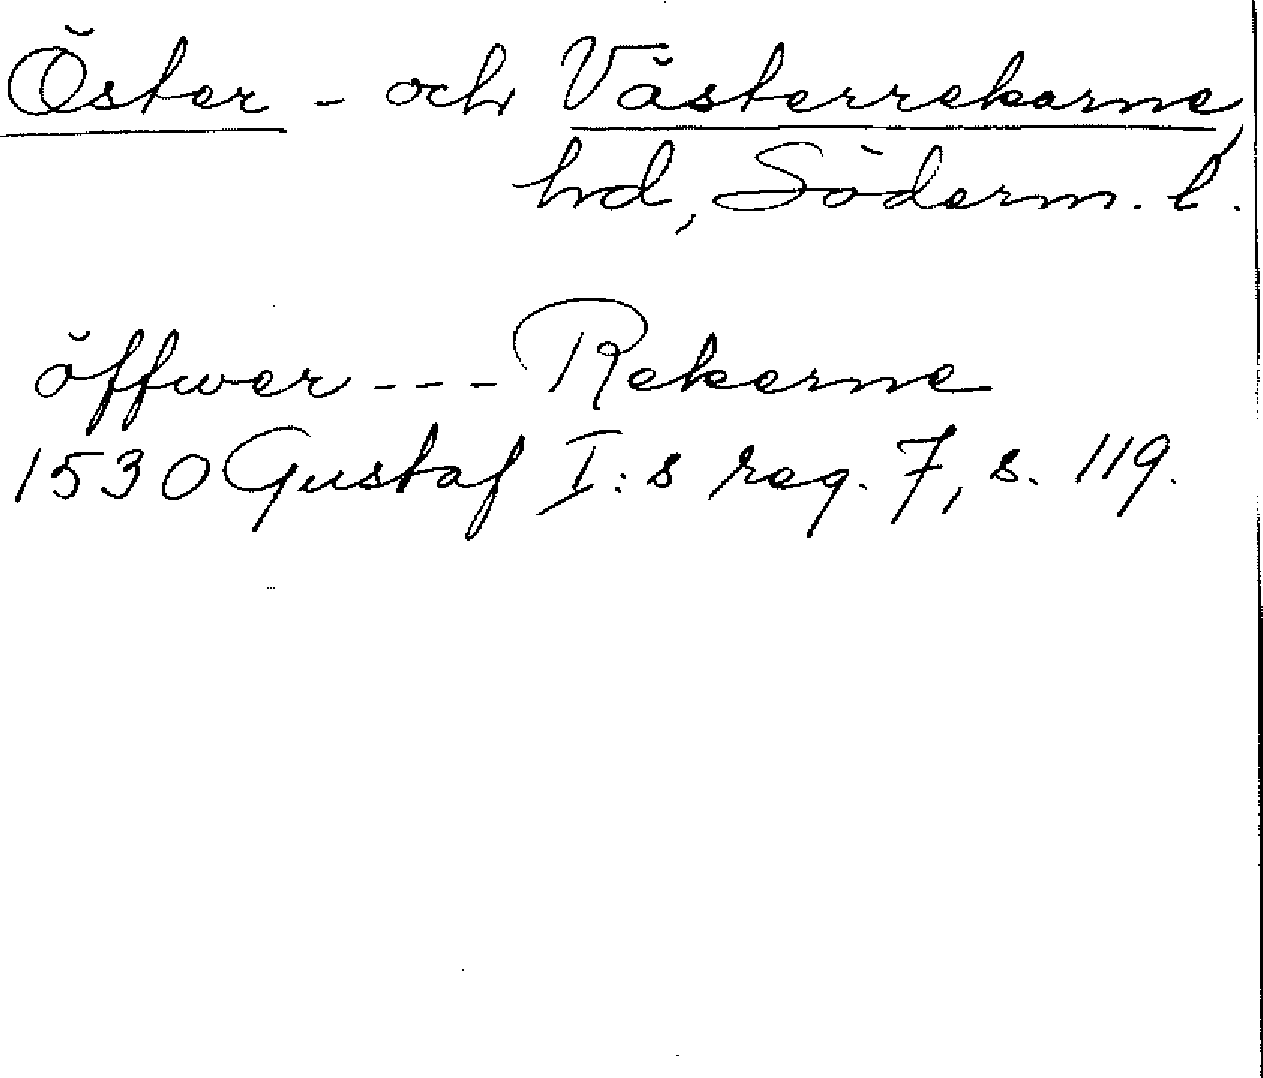 Öster- och Västerrekarne,
hd, Söderm. l.
öffwer --- Rekerne
1530 Gustaf I:s reg. 7, s. 119.